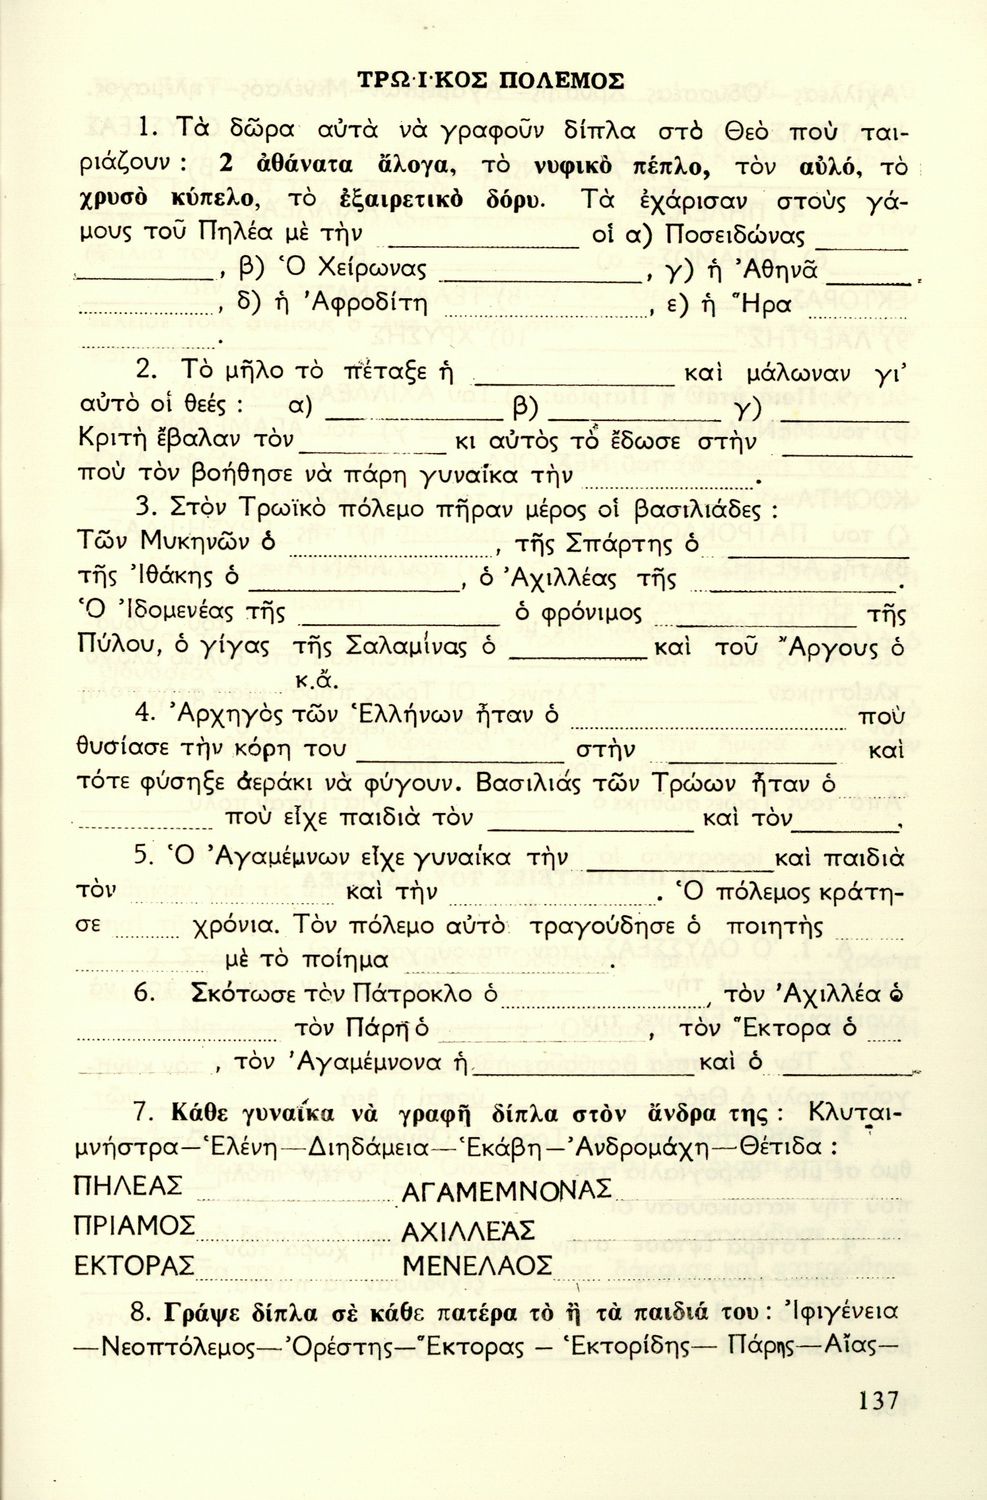 ΤΡΩ·Ι·ΚΟΣ ΠΟΛΕΜΟΣ
1. Τὰ δῶρα αὐτὰ νὰ γραφοῦν δίπλα στὸ Θεὸ ποὺ ται-
ριάζουν : 2 ἀθάνατα ἄλογα, τὸ νυφικὸ πέπλο, τὸν αὐλό, τὸ
χρυσὸ κύπελο, τὸ ἐξαιρετικὸ δόρυ. Τὰ ἐχάρισαν στοὺς γά-
μους τοῦ Πηλέα μὲ τὴν ____________ οἱ α) Ποσειδώνας ______
_________, β) Ὁ Χείρωνας _____________, γ) ἡ Ἀθηνᾶ ______
.............., δ) ἡ Ἀφροδίτη ......................, ε) ἡ Ἥρα ..........
...............
2. Τὸ μῆλο τὸ πέταξε ἡ _____________ καὶ μάλωναν γι'
αὐτὸ οἱ θεές : α) ___________ β) _____________ γ) ________
Κριτὴ ἔβαλαν τὸν __________ κι αὐτὸς τὸ ἔδωσε στὴν ________
ποὺ τὸν βοήθησε νὰ πάρη γυναίκα τὴν ...................
3. Στὸν Τρωϊκὸ πόλεμο πῆραν μέρος οἱ βασιλιάδες :
Τῶν Μυκηνῶν ὁ ......................, τῆς Σπάρτης ὁ ____________
τῆς Ἰθάκης ὁ ______________, ὁ Ἀχιλλέας τῆς ______________.
Ὁ Ἰδομενέας τῆς _____________ ὁ φρόνιμος _____________ τῆς
Πύλου, ὁ γίγας τῆς Σαλαμίνας ὁ _________ καὶ τοῦ Ἄργους ὁ
...................... κ.ἄ.
4. Ἀρχηγὸς τῶν Ἑλλήνων ἦταν ὁ .............................. ποὺ
θυσίασε τὴν κόρη του ______________ στὴν _____________ καὶ
τότε φύσηξε ἀεράκι νὰ φύγουν. Βασιλιάς τῶν Τρώων ἦταν ὁ .......
............... ποὺ εἶχε παιδιὰ τὸν _____________ καὶ τὸν_______.
5. Ὁ Ἀγαμέμνων εἶχε γυναίκα τὴν ____________ καὶ παιδιὰ
τὸν ...................... καὶ τὴν ....................... Ὁ πόλεμος κράτη-
σε ....... χρόνια. Τὸν πόλεμο αὐτὸ τραγούδησε ὁ ποιητὴς ........
................ μὲ τὸ ποίημα .......................
6. Σκότωσε τὸν Πάτροκλο ὁ......................, τὸν Ἀχιλλέα ὁ
....................... τὸν Πάρη ὁ ......................, τὸν Ἕκτορα ὁ ....
..............., τὸν Ἀγαμέμνονα ἡ_______________ καὶ ὁ _________
7. Κάθε γυναίκα νὰ γραφῆ δίπλα στὸν ἄνδρα της : Κλυται-
μνήστρα—Ἑλένη—Διηδάμεια—Ἑκάβη—Ἀνδρομάχη—Θέτιδα :
ΠΗΛΕΑΣ ...................... ΑΓΑΜΕΜΝΟΝΑΣ......................
ΠΡΙΑΜΟΣ...................... ΑΧΙΛΛΕΑΣ ......................
ΕΚΤΟΡΑΣ...................... ΜΕΝΕΛΑΟΣ......................
8. Γράψε δίπλα σὲ κάθε πατέρα τὸ ἢ τὰ παιδιά του : Ἰφιγένεια
—Νεοπτόλεμος—Ὀρέστης—Ἕκτορας — Ἑκτορίδης— Πάρης—Αἴας—
137